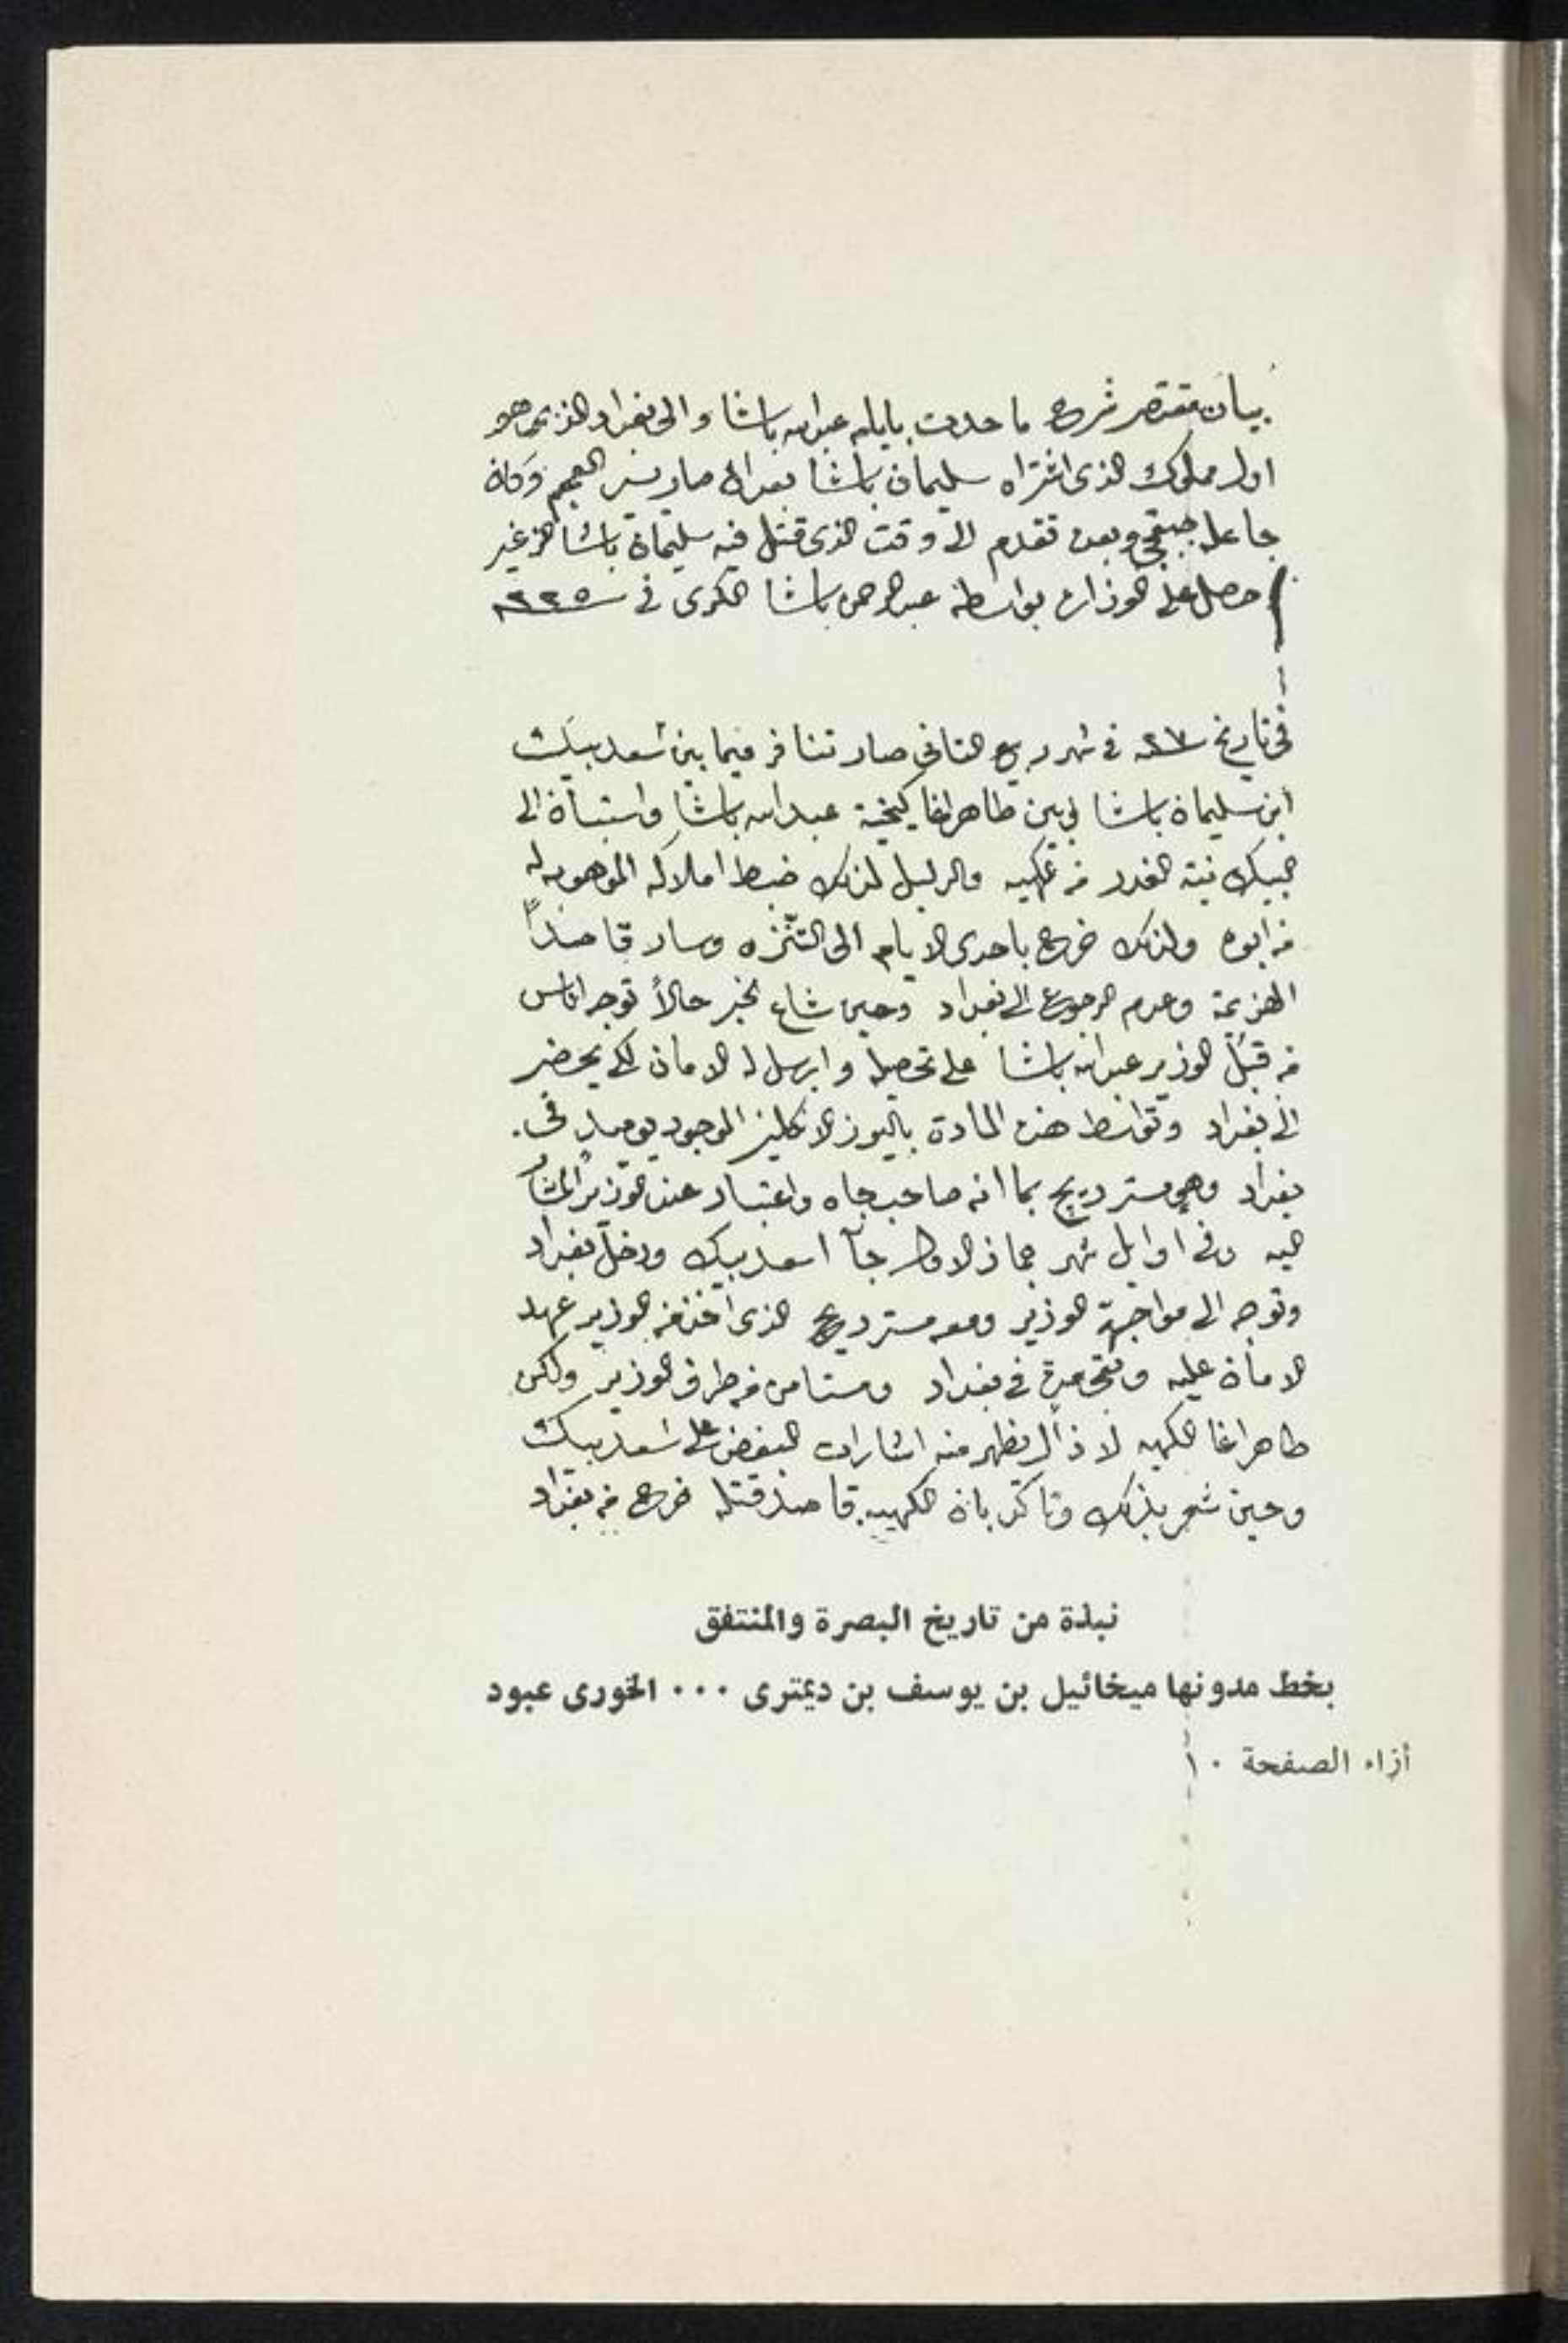 بيان مقتصر شرح ما حدث بايله عبدالله باشا والى بغداد الذى هو
اول مملوك الذى اشتراه سليمان باشا بعد ان صار يسير العجم وكان
جاعله جبقجى وبعده تقدم الى وقت الذى قتل فيه سليمان باشا الزغير
حصل على الوزارة بواسطة عبد الرحمن باشا الكردى فى سنة ١٢٢٥
فى تاريخ سنة ٢٧ فى شهر ربيع الثانى صار تنافر فيما بين اسعد بيك
ابن سليمان باشا وبين طاهر اغا كيخية عبدالله باشا واستبان الى
البيك نية الغدر من الكهيه والدليل لذلك ضبط املاكه الموهوبه له
من ابوه ولذلك خرج باحدى الايام الى التنزه وسار قاصداً
الهزيمة وعدم الرجوع الى بغداد وحين شاع الخبر حالاً توجه اناس
من قبل الوزير عبدالله باشا على تحصيله وارسل له الامان لكى يحضر
الى بغداد وتواسط هذه المادة باليوز الانكليز الموجود يوميذٍ فى
بغداد وهو مستر ريج بما انه صاحب جاه واعتبار عند الوزير المشار
اليه وفى اوايل شهر جماذ الاول جآ اسعد بيك ودخل بغداد
وتوجه الى مواجهة الوزير ومعه مستر ريج الذى اخذ من الوزير عهد
الامان عليه وبقى مدة فى بغداد ومستامن من طرف الوزير ولكن
طاهر اغا الكهيه لا ذال يظهر منه اشارات البغض على اسعد بيك
وحين شعر بذلك وتاكد بان الكهيه قاصد قتله خرج من بغداد
نبذة من تاريخ البصرة والمنتفق
بخط مدونها ميخائيل بن يوسف بن ديمترى ٠٠٠ الخورى عبود
أزاء الصفحة ١٠